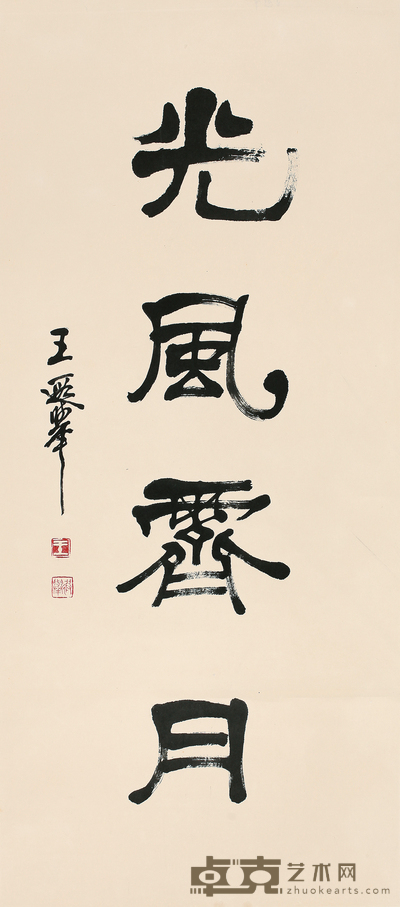 光風霽月
王遐舉
卓克艺术网
zhuokearts.com